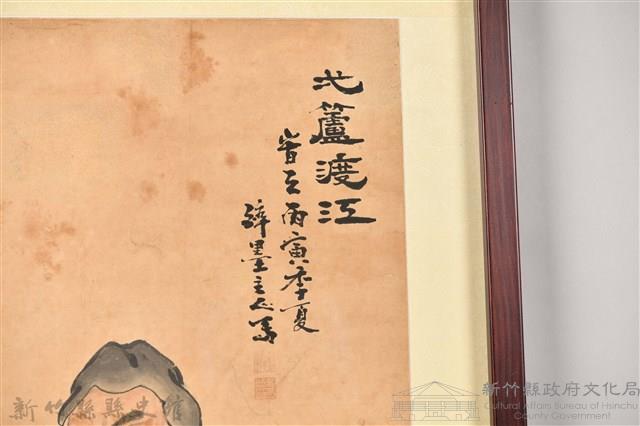 弌蘆渡江
旹丙寅季夏
醉墨主人寫
新竹縣縣史館
新竹縣政府文化局
Cultural Affairs Bureau of Hsinchu
County Government